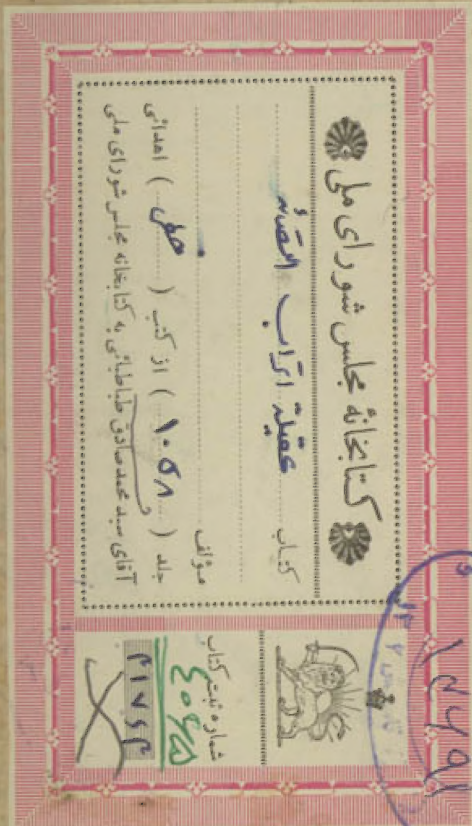 کتابخانهٔ مجلس شورای ملی
کتاب عقیلة اتراب القصائد
مؤلف
جلد ( ۱۰۵۸ ) از کتب ( خطی ) اهدائی
آقای سید محمد صادق طباطبائی به کتابخانه مجلس شورای ملی
شماره ثبت کتاب
۴۱۷۶۳